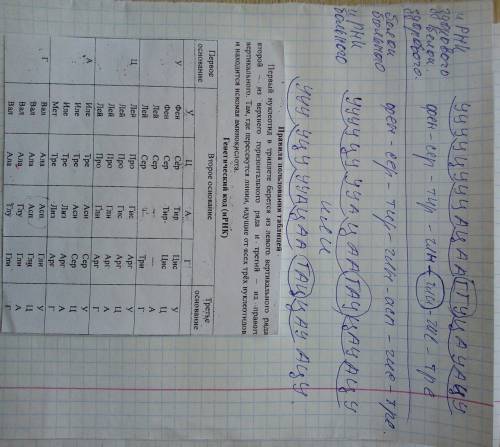 и РНК
здорового
белок
здорового
фен - сер - тир - глн - гис - - тре
Белок
больного
фен - сер - тир - глн - асп - гис - тре.
и РНК
больного
или
Правила пользования таблицей
Первый нуклеотид в триплете берется из левого вертикального ряда
второй – из верхнего горизонтального ряда и третий – из правого
вертикального. Там, где пересекутся линии, идущие от всех трёх нуклеотидов
и находится искомая аминокислота.
Генетический код (иРНК)
Первое основание Второе основание Третье основание
У Ц А Г
У Фен Сер Тир Цис У
Фен Сер Тир Цис Ц
Лей Сер - - А
Лей Сер - Три Г
Ц Лей Про Гис Арг У
Лей Про Гис Арг Ц
Лей Про Глн Арг А
Лей Про Глн Арг Г
А Иле Тре Асн Сер У
Иле Тре Асн Сер Ц
Иле Тре Лиз Арг А
Мет Тре Лиз Арг Г
Г Вал Ала Асп Гли У
Вал Ала Асп Гли Ц
Вал Ала Глу Гли А
Вал Ала Глу Гли Г